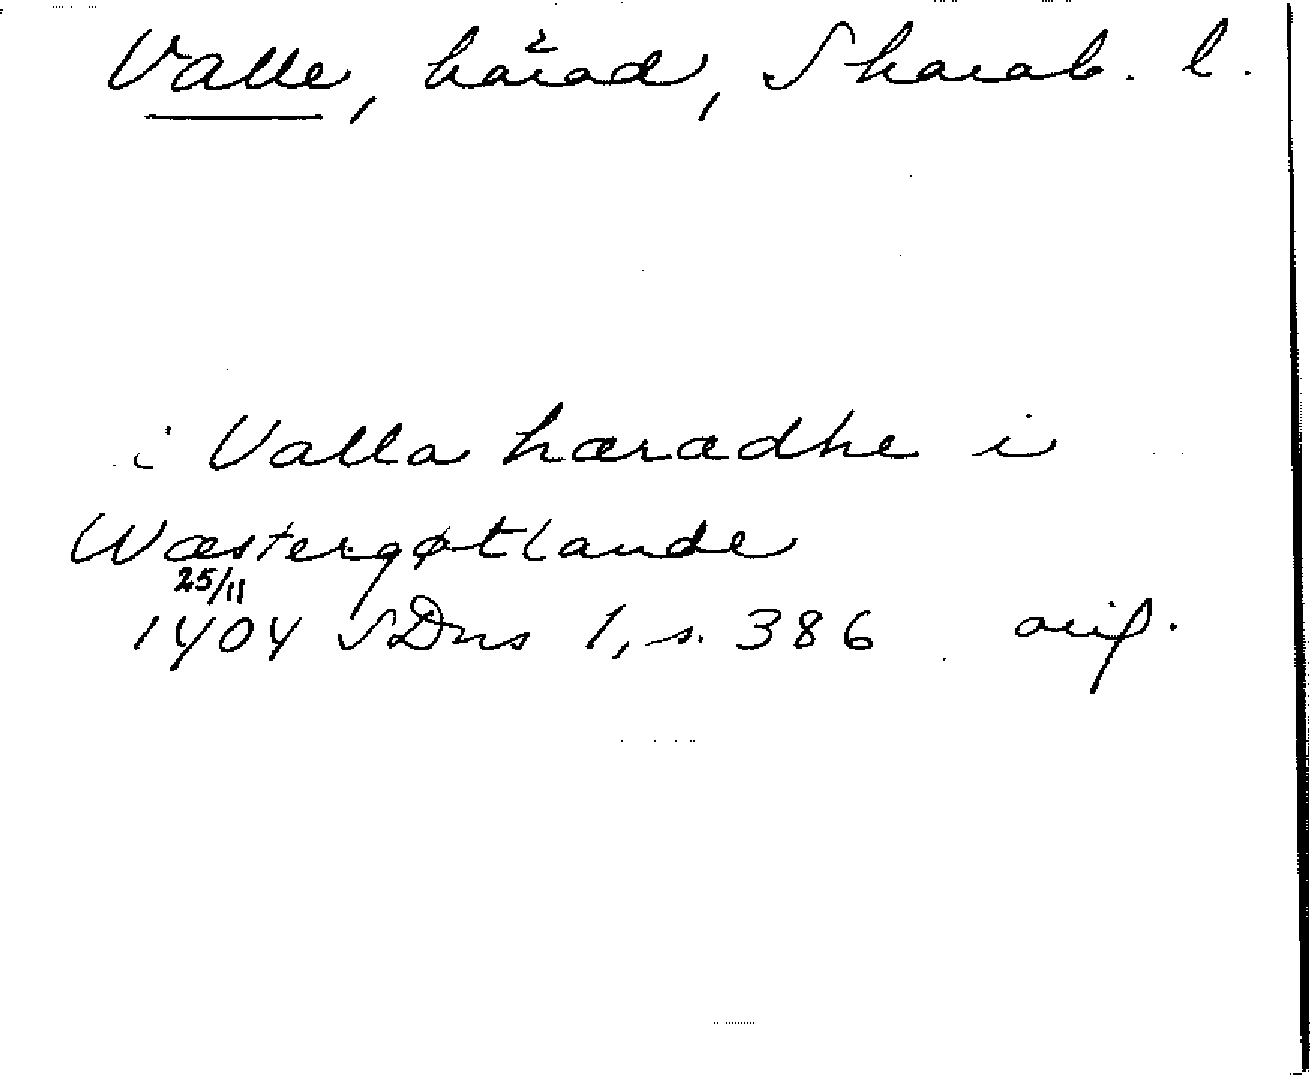 Valle, härad, Skarab. l.
i Valla hæradhe i
Wæstergøtlande
25/11
1404 SDns 1, s. 386 orig.